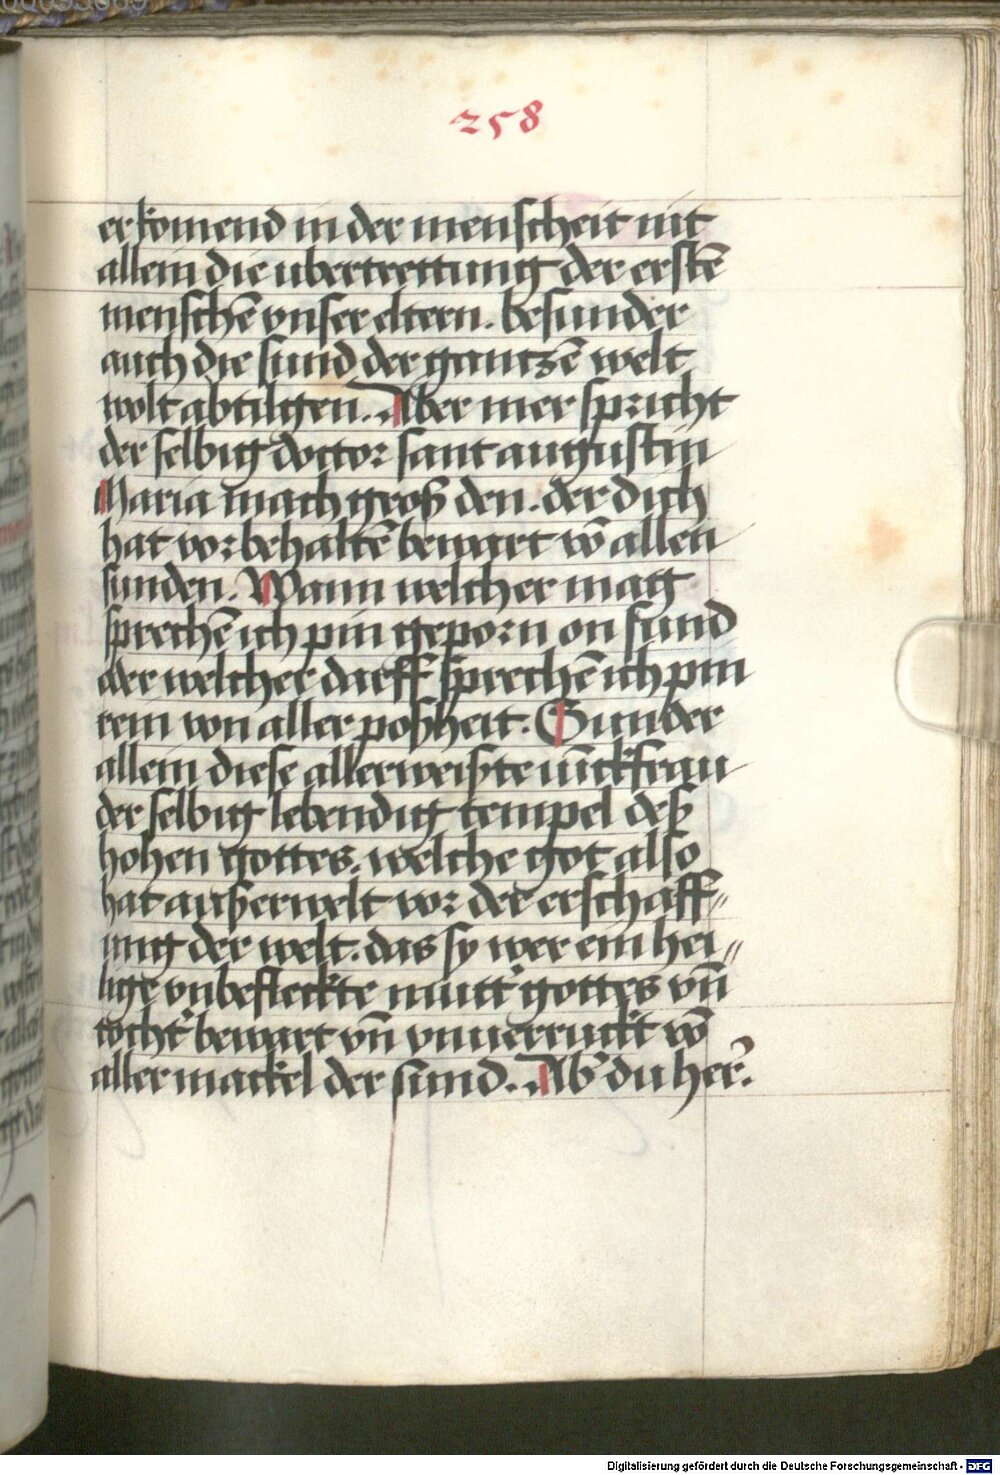 258
er komend in der menscheit nit
allein die ubertrettung der erstē
menschē vnser eltern. besunder
auch die sund der gantzē welt
wolt abtilgen. Aber mer spricht
der selbig doctor sant augustin
Maria mach groß den. der dich
hat vorbehaltē bewart vō allen
sunden. Wann welcher mag
sprechē ich pin geporn on sund
oder welcher dreff sprechē ich pin
rein von aller poßheit. Sunder
allein diese allerweißte iūckfrau
der selbig lebendig tempel deß
hohen gottes. welche got also
hat außerwelt vor der erschaff〃
ung der welt. das sy wer ein hei〃
lige vnbefleckte mutt' gottes vn̄
tocht' bewart vn̄ vnuerruckt vō
aller mackel der sund. Ab' du her'.
Digitalisierung gefördert durch die Deutsche Forschungsgemeinschaft - DFG